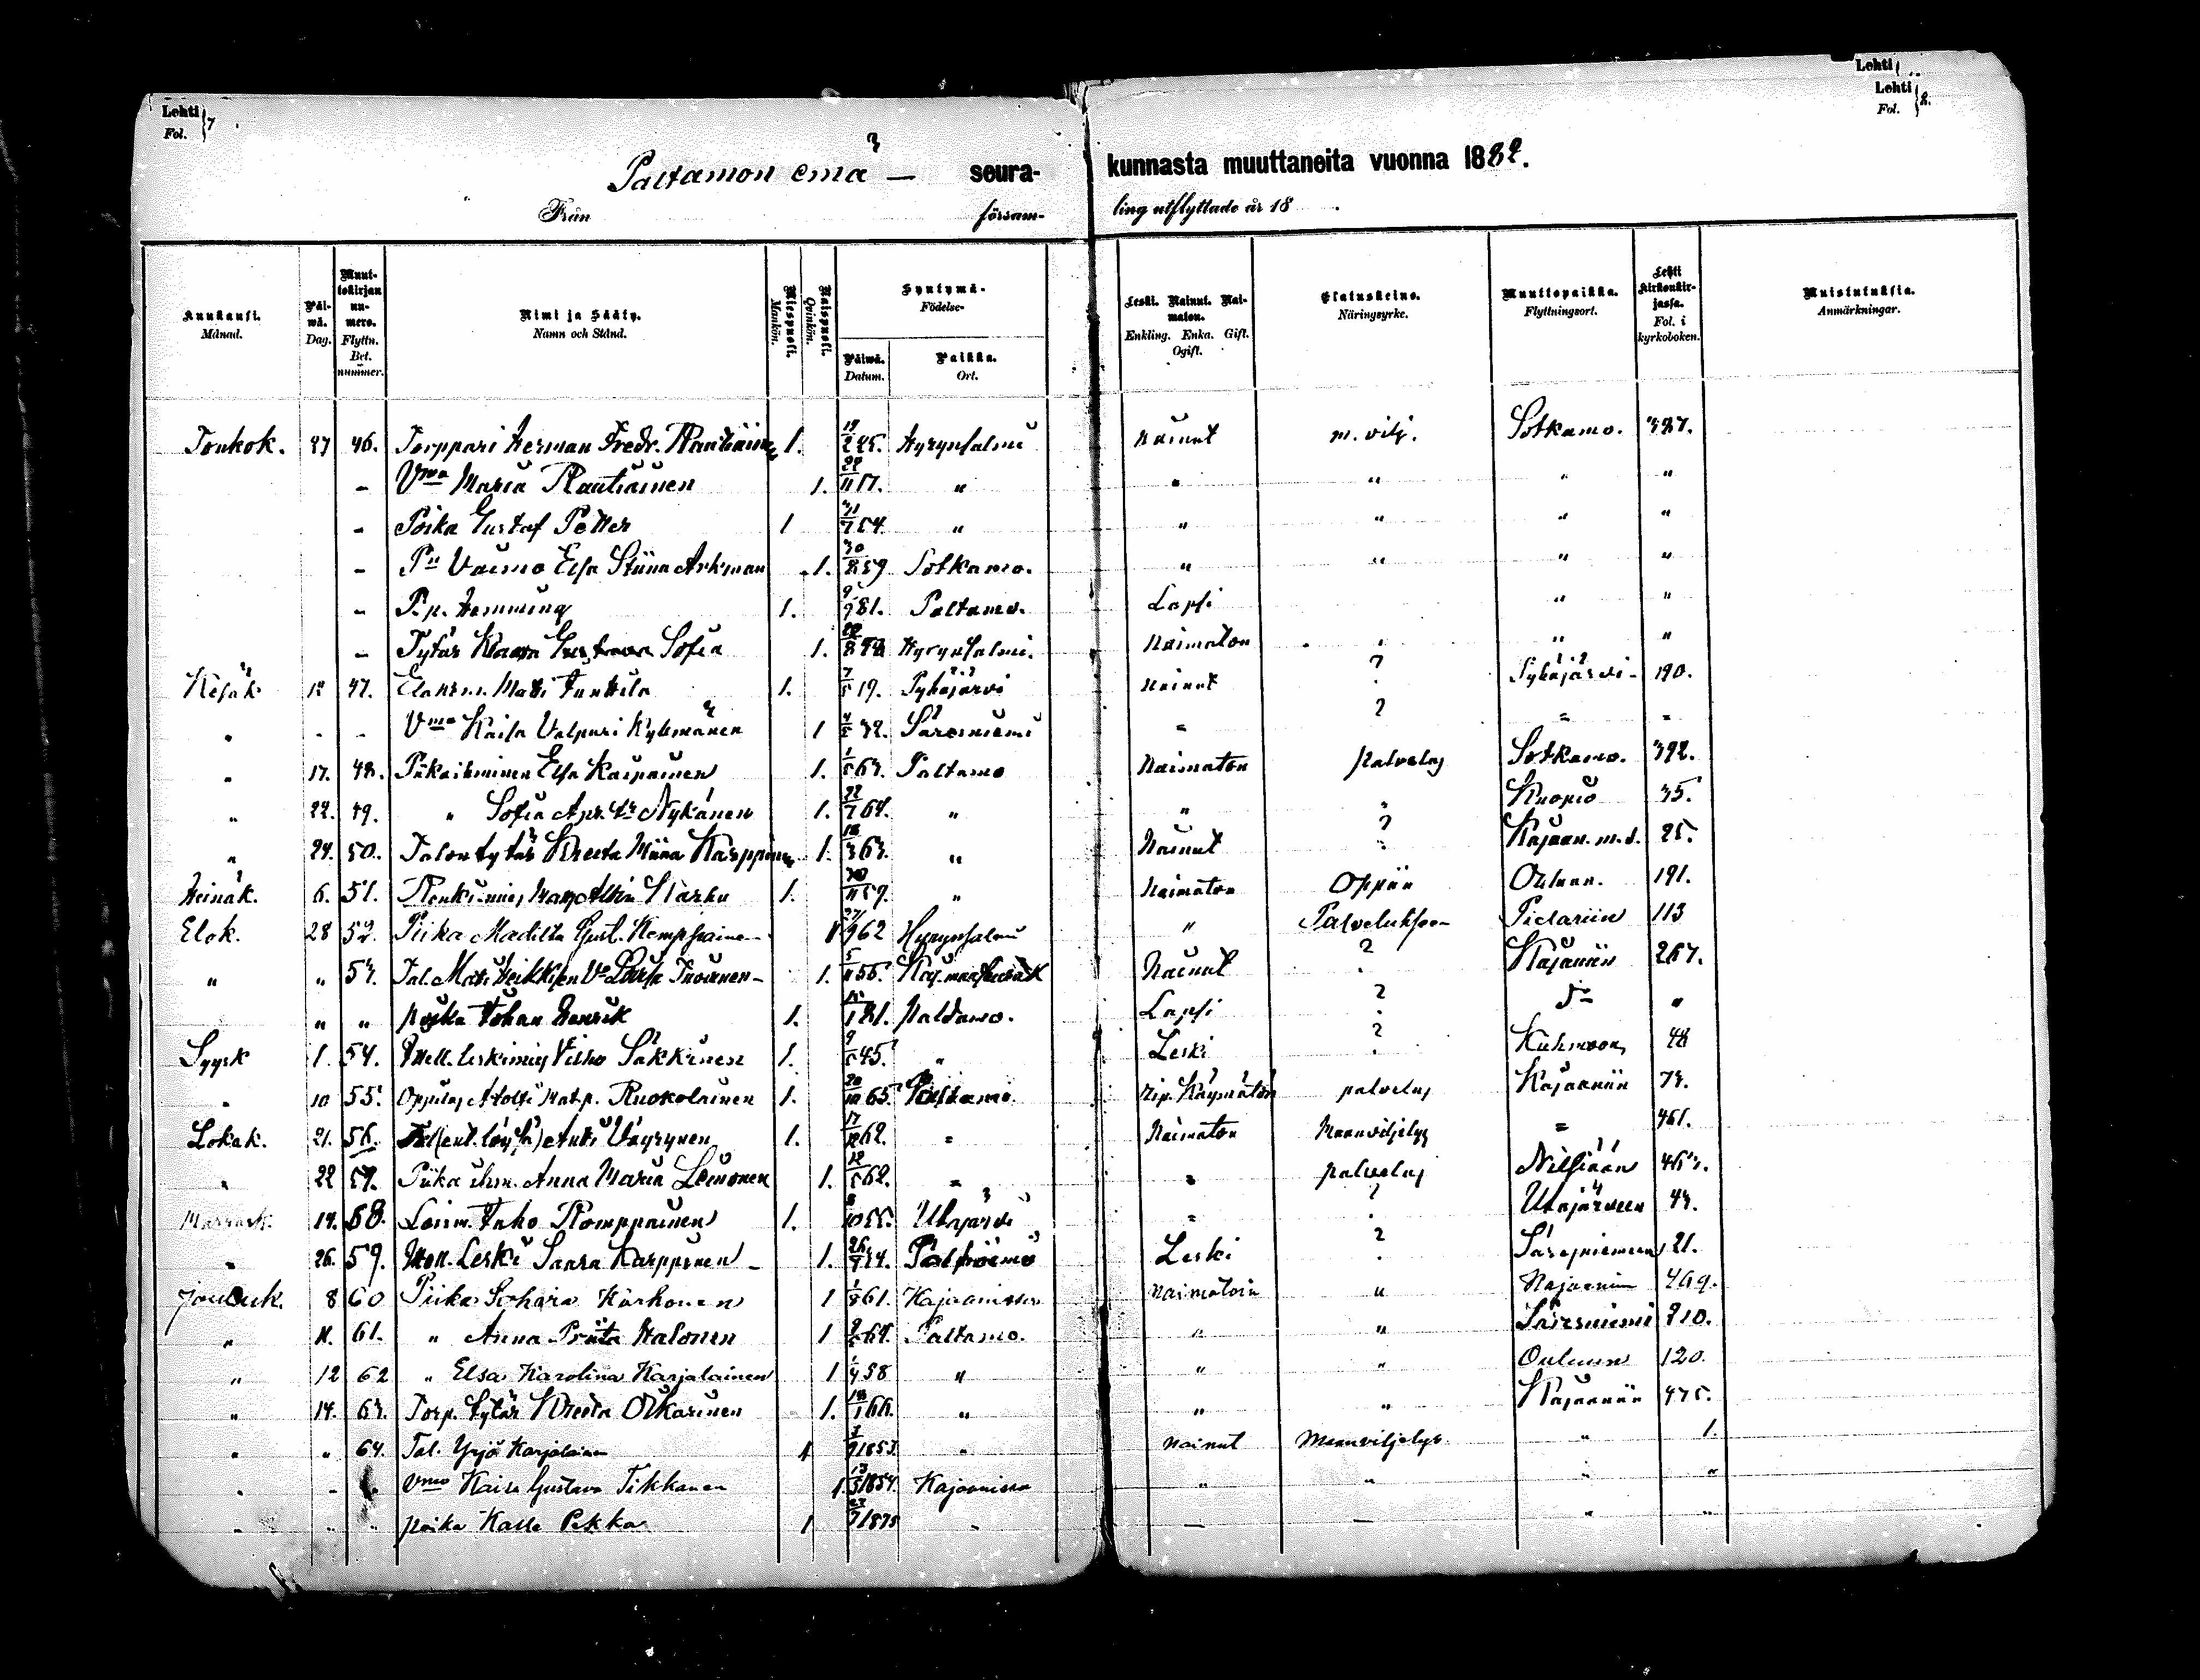 Lehti
Lehti Fol. 7
Lehti Fol. 8.
Paltamon emä — seurakunnasta muuttaneita vuonna 1882.
Från församling utflyttade år 18 .
Kuukausi. Månad. | Päiwä. Dag. | Muuttokirjan numero. Flyttn. Bet. nummer. | Nimi ja Sääty. Namn och Stånd. | Miespuoli. Mankön. | Naispuoli. Qvinkön. | Syntymä- Födelse- Päiwä. Datum. | Paikka. Ort. | Leski. Nainut. Naimaton. Enkling. Enka. Gift. Ogift. | Elatuskeino. Näringsyrke. | Muuttopaikka. Flyttningsort. | Lehti kirkonkirjassa. Fol. i kyrkoboken. | Muistutuksia. Anmärkningar.
Toukok. 27 46. Torppari Herman Fredr. Rautiainen 1. 19/2 25. Hyrynsalmi Nainut m. vilj. Sotkamo. 327.
– Vmo Maria Rautiainen 1. 22/11 17. " " " " "
– Poika Gustaf Petter 1 31/7 54. " " " " "
– Pn Vaimo Elsa Stiina Arkman 1. 30/8 59 Sotkamo. " " " "
– P. p. Hemming 1. 9/9 81. Paltamo. Lapsi " "
– Tytär Sofia 1. Hyrynsalmi. Naimaton " "
Kesäk 12 47. Matti Junttila 1. 7/5 19. Pyhäjärvi Nainut ? Pyhäjärvi 190.
" - - Vmo Kaisa Valpuri Kylmänen 1 4/5 32. Säresniemi " ? " "
" 17. 48. Piikaihminen Elsa Karppinen 1. 1/5 63. Paltamo Naimaton palvelus Sotkamo. 392.
" 22. 49. " Sofia Ap. tr Nykänen 1. 22/7 64. " " " Kuopio 35.
" 24. 50. Talon tytär Kreeta Miina Karppinen 1. 18/3 63. " Nainut ? Kajaan. m.s. 25.
Heinäk. 6. 51. Renkimies 1. 30/11 59. " Naimaton Oppiin Ouluun. 191.
Elok. 28 52. Piika Madilta Gust. Kemppainen 1 27/9 62 Hyrynsalmi " Palvelukseen Pielaviin 113
" " 53. Tal. Matti Heikkisen Vo Loviisa Tuovinen – 1. 5/11 55. Nainut ? Kajaaniin 267.
" " " poika Johan Henrik 1. 15/1 81. Paltamo. Lapsi ? do "
Syysk 1. 54. leskimies Vilho Säkkinen 1. 9/5 45. " Leski ? Kuhmoon 48
" 10 55. Oppilas Adolfi Mat. p. Ruokolainen 1. 20/10 65. Paltamo. rip. Käymätön palvelus Kajaaniin 73.
Lokak. 21. 56. Antti Väyrynen 1. 17/12 62. " Naimaton Maanviljelys " 461.
" 22 57. Piika ihm. Anna Maria Leinonen 1. 12/5 62. " " palvelus Nilsiään 463.
Marrask. 14. 58. Loism. Juho Romppainen 1. 8/10 55. Utajärvi " ? Utajärveen 43.
" 26. 59. Leski Saara Karppinen – 1. 26/7 34. Paltamo Leski ? Säresniemeen 21.
Jouluk. 8 60 Piika Härkönen 1 1/8 61. Kajaanissa Naimatoin " Kajaanin 469.
" 11. 61. " Anna Priita Halonen 1 9/2 64. Paltamo. " " Säresniemi 210.
" 12 62 " Elsa Karolina Karjalainen 1 1/4 58 " " " Ouluun 120.
" 14. 63. Torp. tytär Kreeta Oikarinen 1. 18/1 66. " " " Kajaaniin 475.
" " 64. Tal. Yrjö Karjalainen 1 3/9 1853. " Nainut Maanviljelys " 1.
" - " Vmo Kaisa Gustava Tikkanen 1. 13/5 1854. Kajaanissa " " " "
" " " poika Kalle Pekka 1 27/7 1875 " — — " "